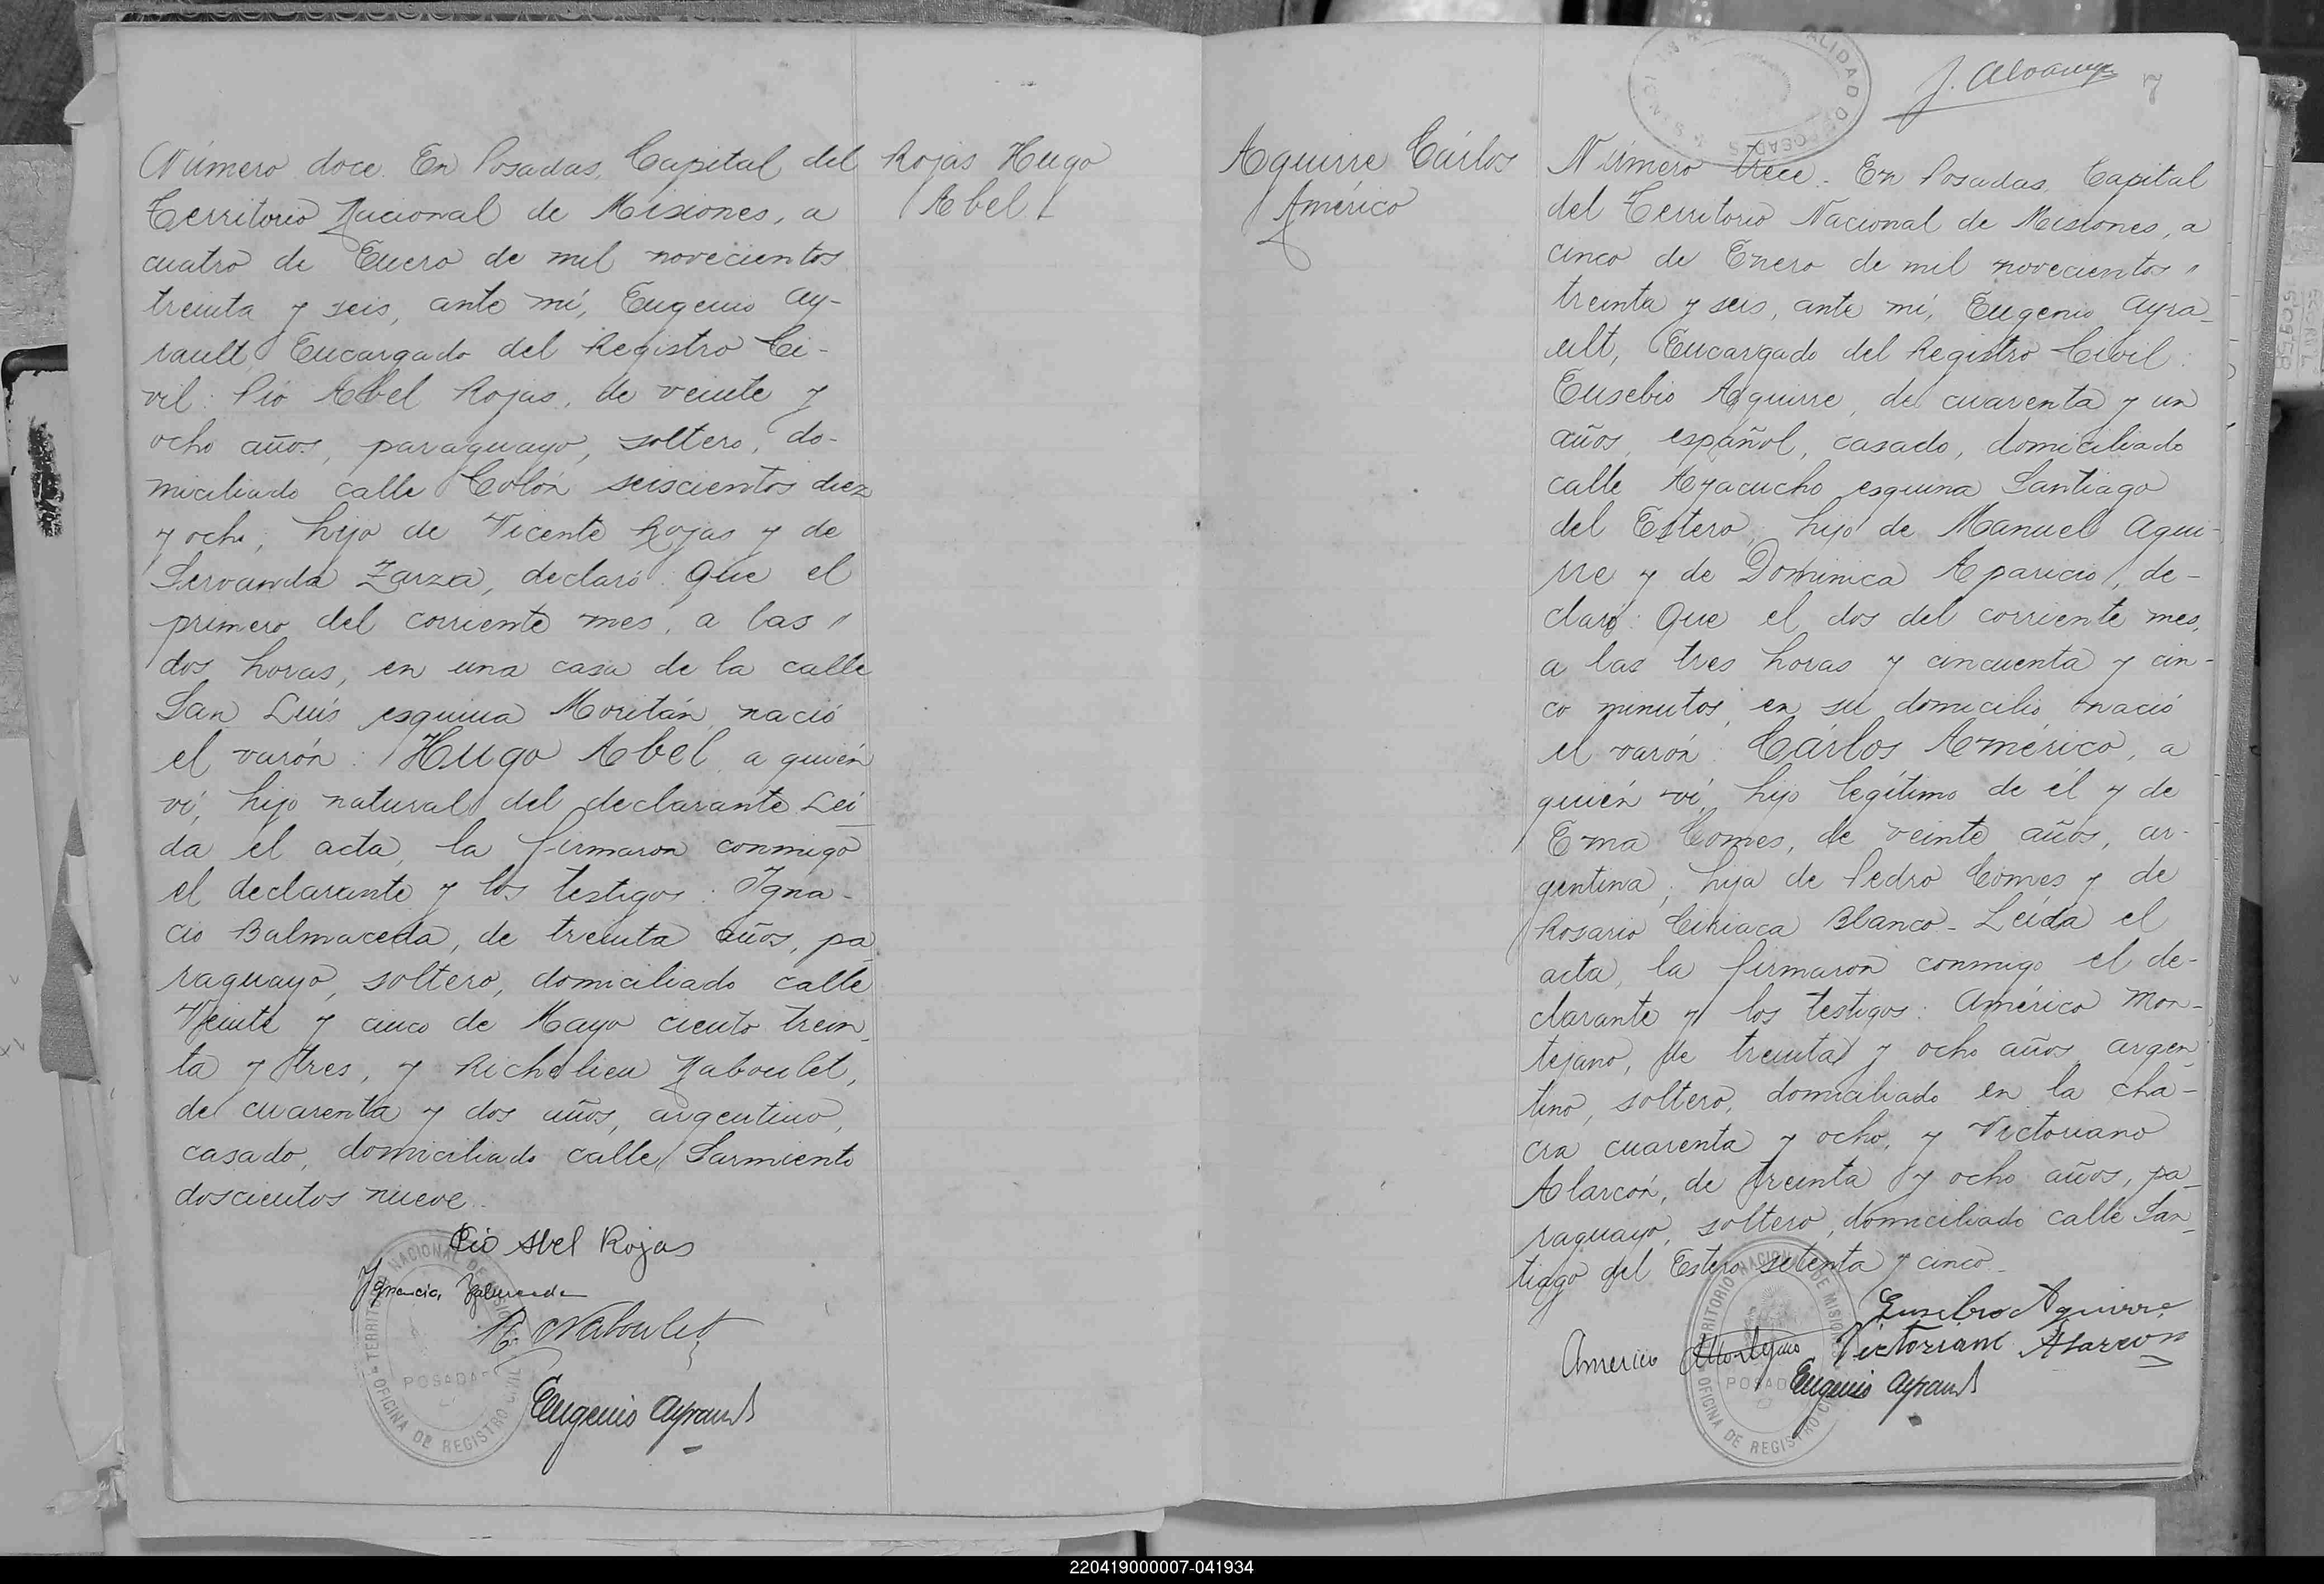 Número doce. En Posadas, Capital del
Territorio Nacional de Misiones, a
cuatro de Enero de mil novecientos
treinta y seis, ante mí, Eugenio Ay-
rault, Encargado del Registro Ci-
vil: Pío Abel Rojas, de veinte y
ocho años, paraguayo, soltero, do-
miciliado calle Colón seiscientos diez
y ocho, hijo de Vicente Rojas y de
Servanda Zarza, declaró: Que el
primero del corriente mes, a las "
dos horas, en una casa de la calle
San Luis esquina Moritán, nació
el varón: Hugo Abel, a quién
ví, hijo natural del declarante. Leí
da el acta, la firmaron conmigo
el declarante y los testigos: Igna-
cio Balmaceda, de treinta años, pa
raguayo, soltero, domiciliado calle
Veinte y cinco de Mayo ciento trein
ta y tres, y Richelieu Naboulet,
de cuarenta y dos años, argentino,
casado, domiciliado calle Sarmiento
doscientos nueve.
Pio Abel Rojas
Ignacio Balmaceda
R. Naboulet
Eugenio Ayrault
TERRITORIO NACIONAL DE MISIONES
POSADAS
OFICINA DE REGISTRO CIVIL
Rojas Hugo
Abel
Aguirre Cárlos
Américo
7
Número trece. En Posadas, Capital
del Territorio Nacional de Misiones, a
cinco de Enero de mil novecientos "
treinta y seis, ante mí, Eugenio Ayra-
ult, Encargado del Registro Civil:
Eusebio Aguirre, de cuarenta y un
años, español, casado, domiciliado
calle Ayacucho esquina Santiago
del Estero, hijo de Manuel Agui-
rre y de Dominica Aparicio, de-
claró: Que el dos del corriente mes,
a las tres horas y cincuenta y cin-
co minutos, en su domicilio, nació
el varón: Cárlos Américo, a
quién ví, hijo legítimo de él y de
Ema Comes, de veinte años, ar-
gentina, hija de Pedro Comes y de
Rosario Ciriaca Blanco. Leída el
acta, la firmaron conmigo el de-
clarante y los testigos: Américo Mon-
tejano, de treinta y ocho años, argen
tino, soltero, domiciliado en la cha-
cra cuarenta y ocho, y Victoriano
Alarcón, de treinta y ocho años, pa-
raguayo, soltero, domiciliado calle San
tiago del Estero setenta y cinco.
Eusebio Aguirre
Americo Montejano Victoriano Alarcon
Eugenio Ayrault
TERRITORIO NACIONAL DE MISIONES
POSADAS
OFICINA DE REGISTRO CIVIL
220419000007-041934